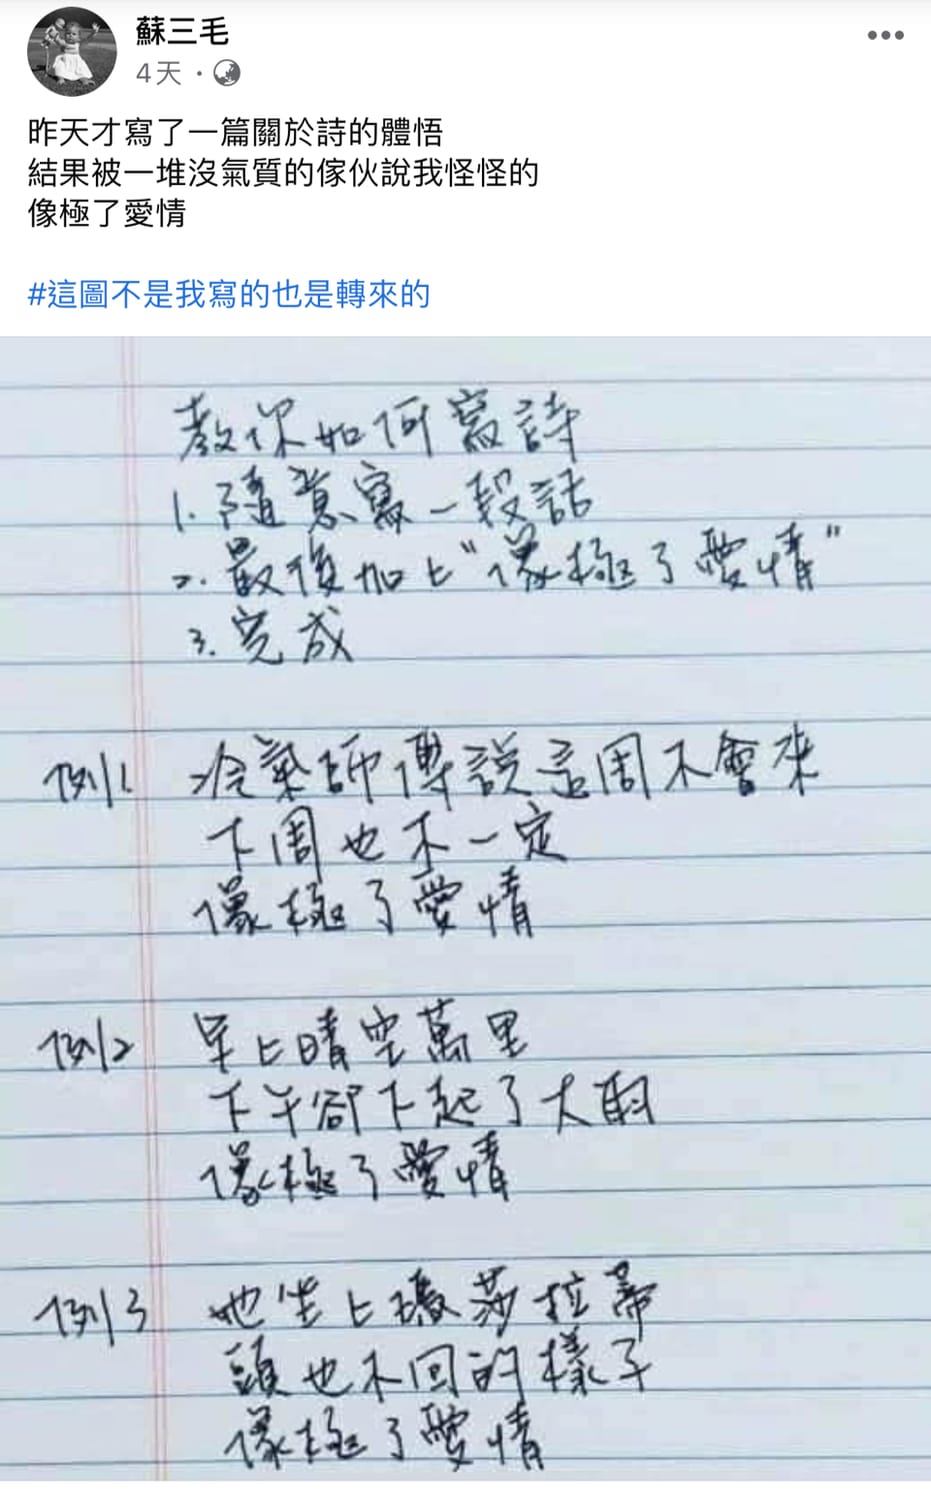 蘇三毛
4天
昨天才寫了一篇關於詩的體悟
結果被一堆沒氣質的傢伙說我怪怪的
像極了愛情
#這圖不是我寫的也是轉來的
教你如何寫詩
1. 隨意寫一段話
2. 最後加上"像極了愛情"
3. 完成
例1 冷氣師傅說這周不會來
下周也不一定
像極了愛情
例2 早上晴空萬里
下午卻下起了大雨
像極了愛情
例3 她坐上瑪莎拉蒂
頭也不回的樣子
像極了愛情